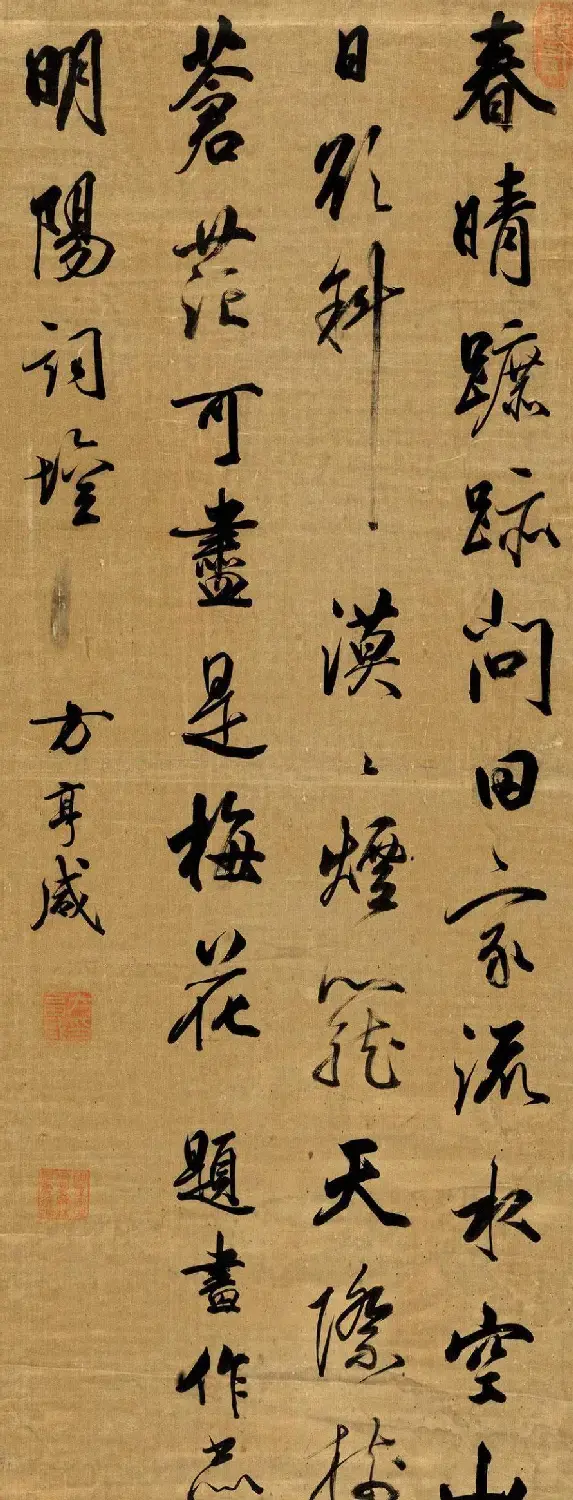 春晴蹠跡問田家流水空山
日欲斜漠々煙籠天際
蒼茫可盡是梅花 題畫作
明陽詞壇 方亨咸